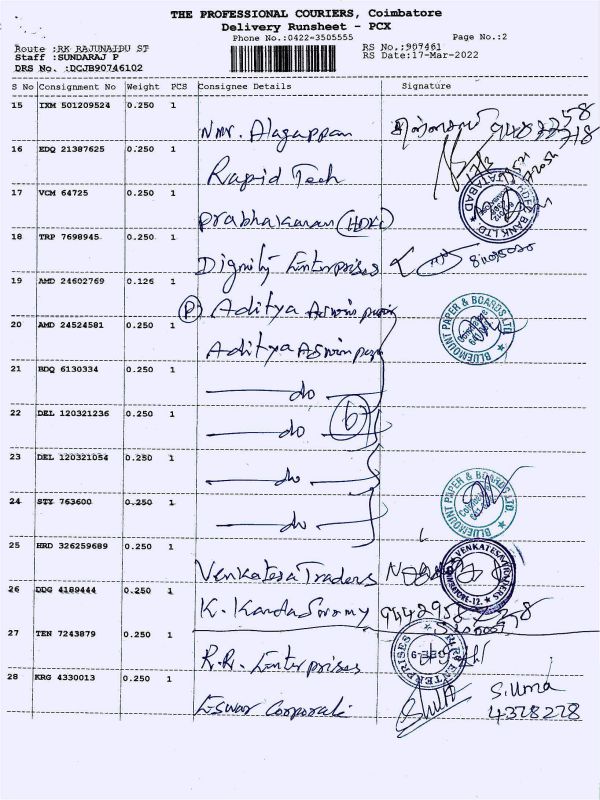 THE PROFESSIONAL COURIERS, Coimbatore
Delivery Runsheet - PCX
Phone No.:0422-3505555
Page No.:2
Route :RK RAJUNAIDU ST
Staff :SUNDARAJ P
DRS No. :DCJB90746102
RS No.:909461
RS Date:17-Mar-2022
S No Consignment No Weight PCS Consignee Details Signature
15 IXM 501209524 0.250 1
Nmr. Alagappan
16 EDQ 21387625 0.250 1
Rapid Tech
17 VCM 64725 0.250 1
Prabhakaran (HDFC)
18 TRP 7698945 0.250 1
Dignity Enterprises
19 AMD 24602769 0.126 1
(P) Aditya Aswin paper
20 AMD 24524581 0.250 1
Aditya Aswin paper
BLUEMOUNT PAPER & BOARDS LTD.
21 BDQ 6130334 0.250 1
do
22 DEL 120321236 0.250 1
do
6
23 DEL 120321054 0.250 1
do
24 STY 763600 0.250 1
do
BLUEMOUNT PAPER & BOARDS LTD.
25 HRD 326259689 0.250 1
Venkatesa Traders
26 DDG 4189444 0.250 1
K. Kandaswamy
27 TEN 7243879 0.250 1
R.R. Enterprises
28 KRG 4330013 0.250 1
Eswar Corporate
S. Uma
4378278